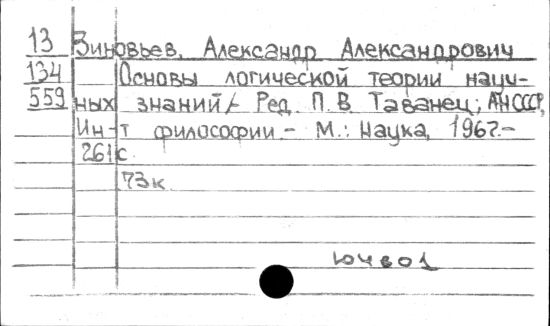 13 Зиновьев, Александр Александрович
134 Основы логической теории науч-
559 ных знаний/- Ред. П.В Таванец; АН СССР,
Ин-т философии.- М.: Наука, 1967.-
261 с.
73к
ЮЧ801